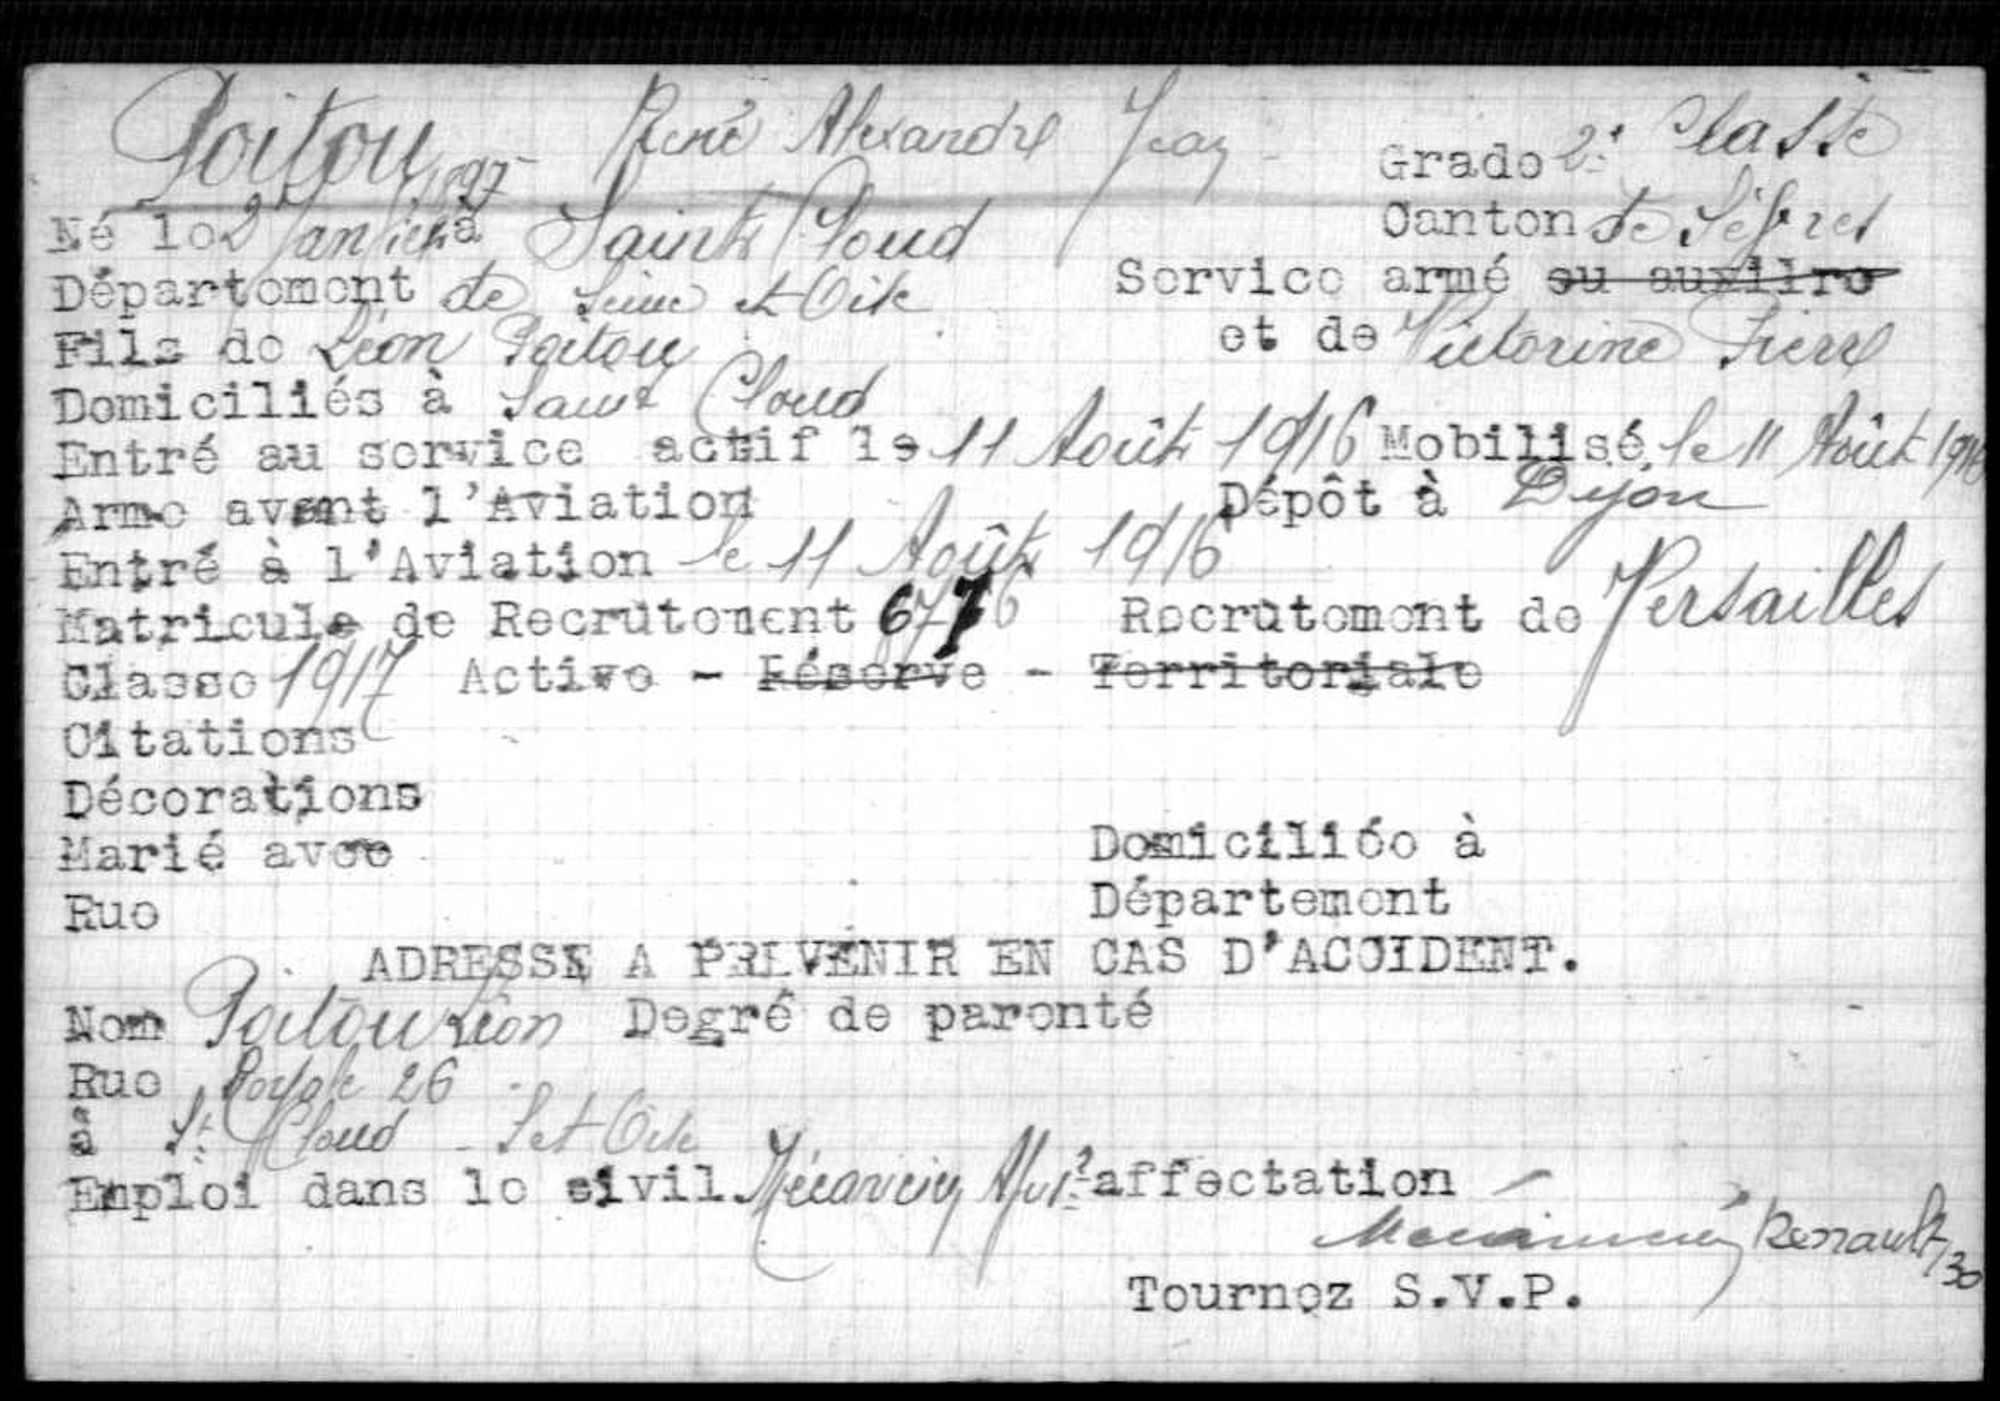 Poitou René Alexandre Jean Grade 2e Classe
Né le 2 Janvier 1897 à Saint Cloud Canton de Sèvres
Département de Seine et Oise Service armé ou auxilire
Fils de Léon Poitou et de Victorine Pierre
Domiciliés à Saint Cloud
Entré au service actif le 11 Août 1916 Mobilisé le 11 Août 1916
Arme avant l'Aviation Dépôt à Dijon
Entré à l'Aviation le 11 Août 1916
Matricule de Recrutement Recrutement de Versailles
Classe 1917 Active - Réserve - Territoriale
Citations
Décorations
Marié avec Domiciliée à
Rue Département
ADRESSE A PREVENIR EN CAS D'ACCIDENT.
Nom Poitou Léon Degré de parenté
Rue Royale 26
à St Cloud - S et Oise
Emploi dans le civil Mécanicien affectation
Mécanicien Renault
Tournez S.V.P.